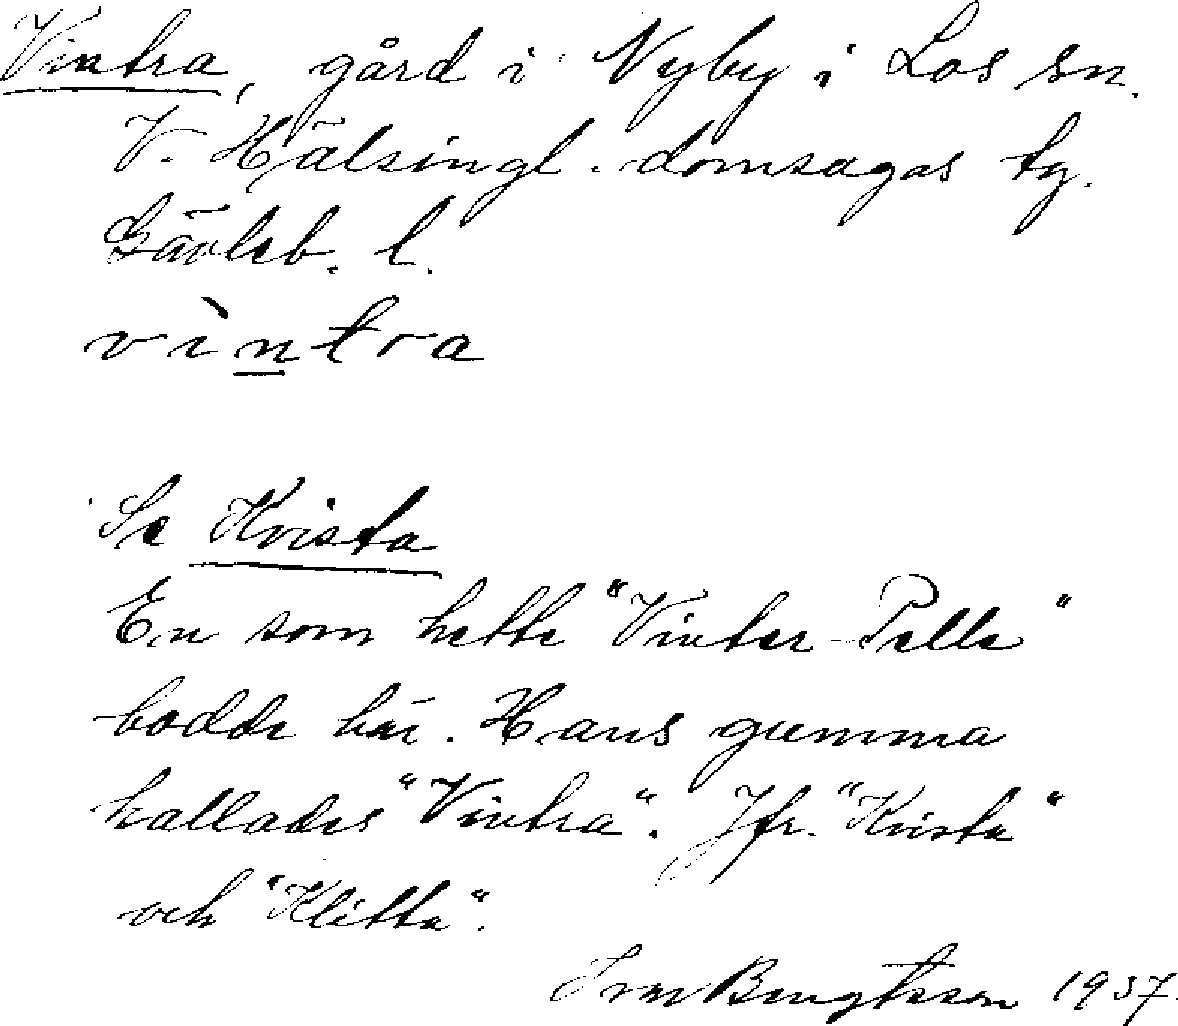 Vintra, gård i Nyby i Los sn.
V. Hälsingl. domsagas tg.
Gävleb. l.
vìntra
Se Kvista
En som hette "Vinter-Pelle"
bodde här. Hans gumma
kallades "Vintra". Jfr. "Kvista"
och "Klitta".
Ivar Bengtsson 1937.